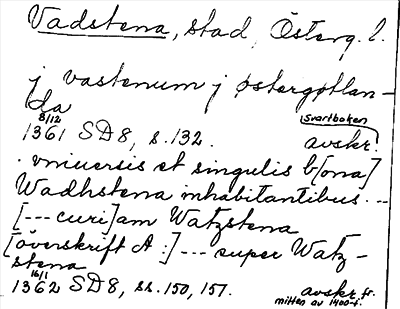 Vadstena, stad, Österg. l.
j vastenum j østergøtlan-
da
8/12
1361 SD 8, s. 132.
Svartboken
avskr.
. vniuersis et singulis b[ona]
Wadhstena inhabitantibus. --
[--- curi]am Watzstena
[överskrift A :] --- super Watz-
stena
16/1
1362 SD 8, ss. 150, 151.
avskr. fr.
mitten av 1400-t.